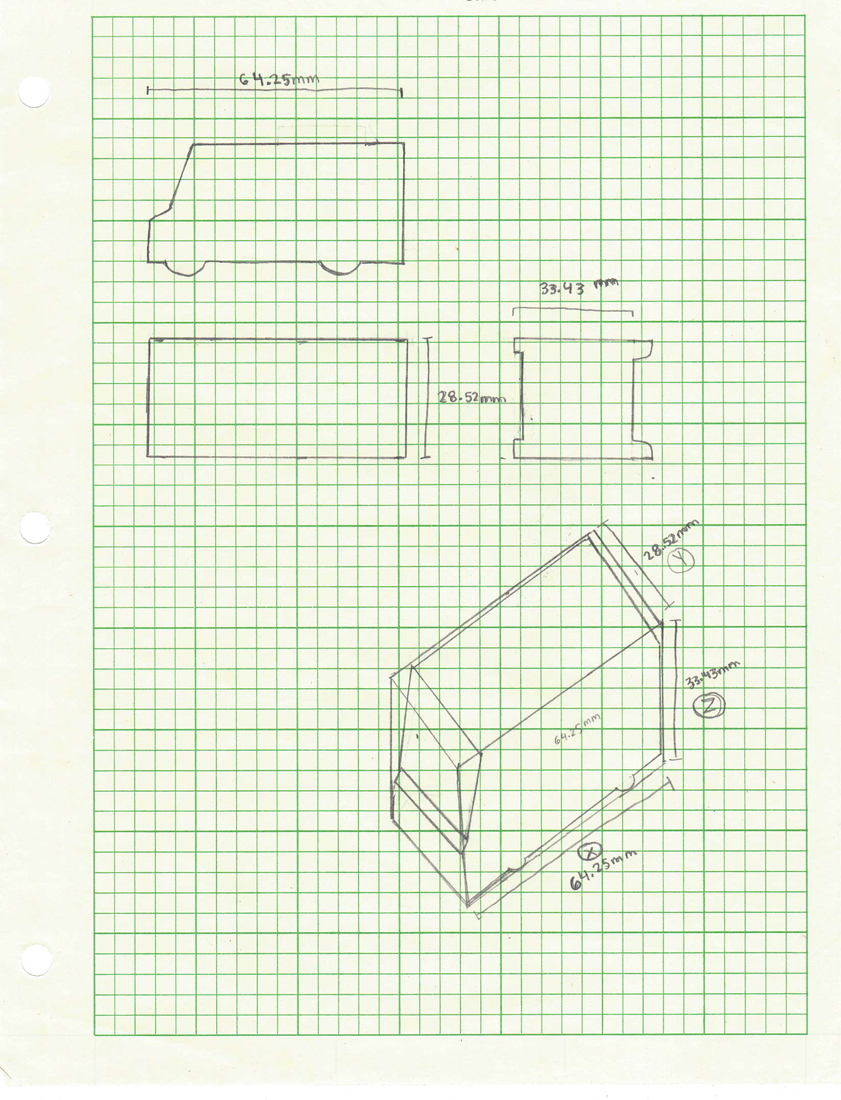 64.25mm
33.43 mm
28.52mm
28.52mm
Y
33.43mm
Z
64.25mm
X
64.25mm